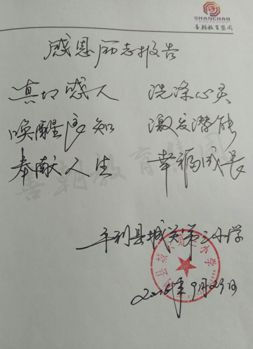 SHANCHAN
善禅教育集团
感恩励志报告
真切感人 洗涤心灵
唤醒良知 激发潜能
奉献人生 幸福成长
平利县城关第三小学
9月29日